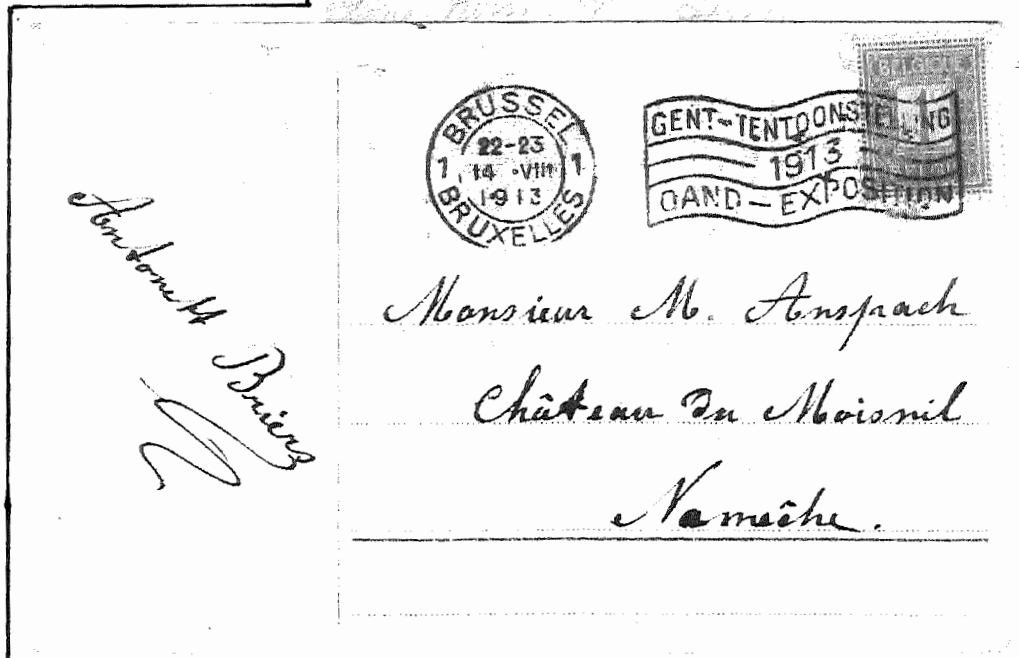 BELGIQUE
BRUSSEL
22-23
1 14 ·VIII 1
1913
BRUXELLES
GENT-TENTOONSTELLING
1913
GAND-EXPOSITION
Antonett
Briers
Monsieur M. Anspach
Château du Moisnil
Namêche.